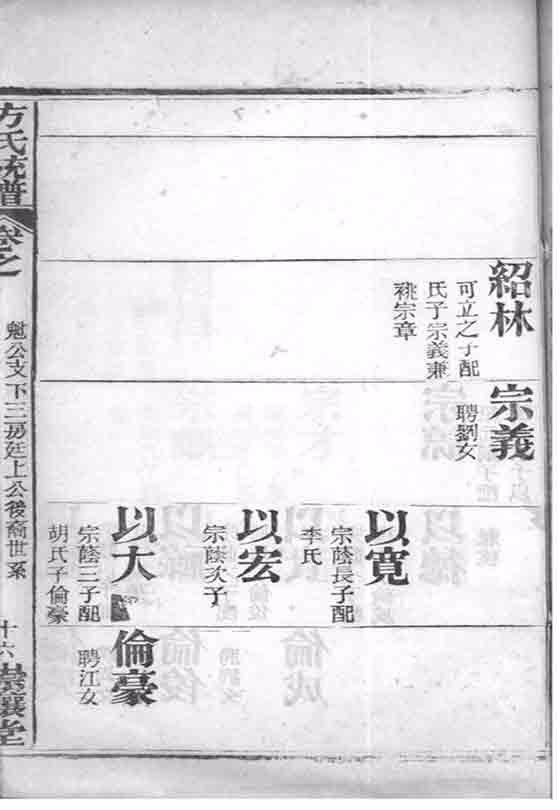 紹林
可立之子配
氏子宗義兼
祧宗章
宗義
聘劉女
以寬
宗蔭長子配
李氏
以宏
宗蔭次子
以大
宗蔭三子配
胡氏子倫豪
倫豪
聘江女
方氏統譜
卷之
魁公支下三房廷上公後裔世系
十六
堂